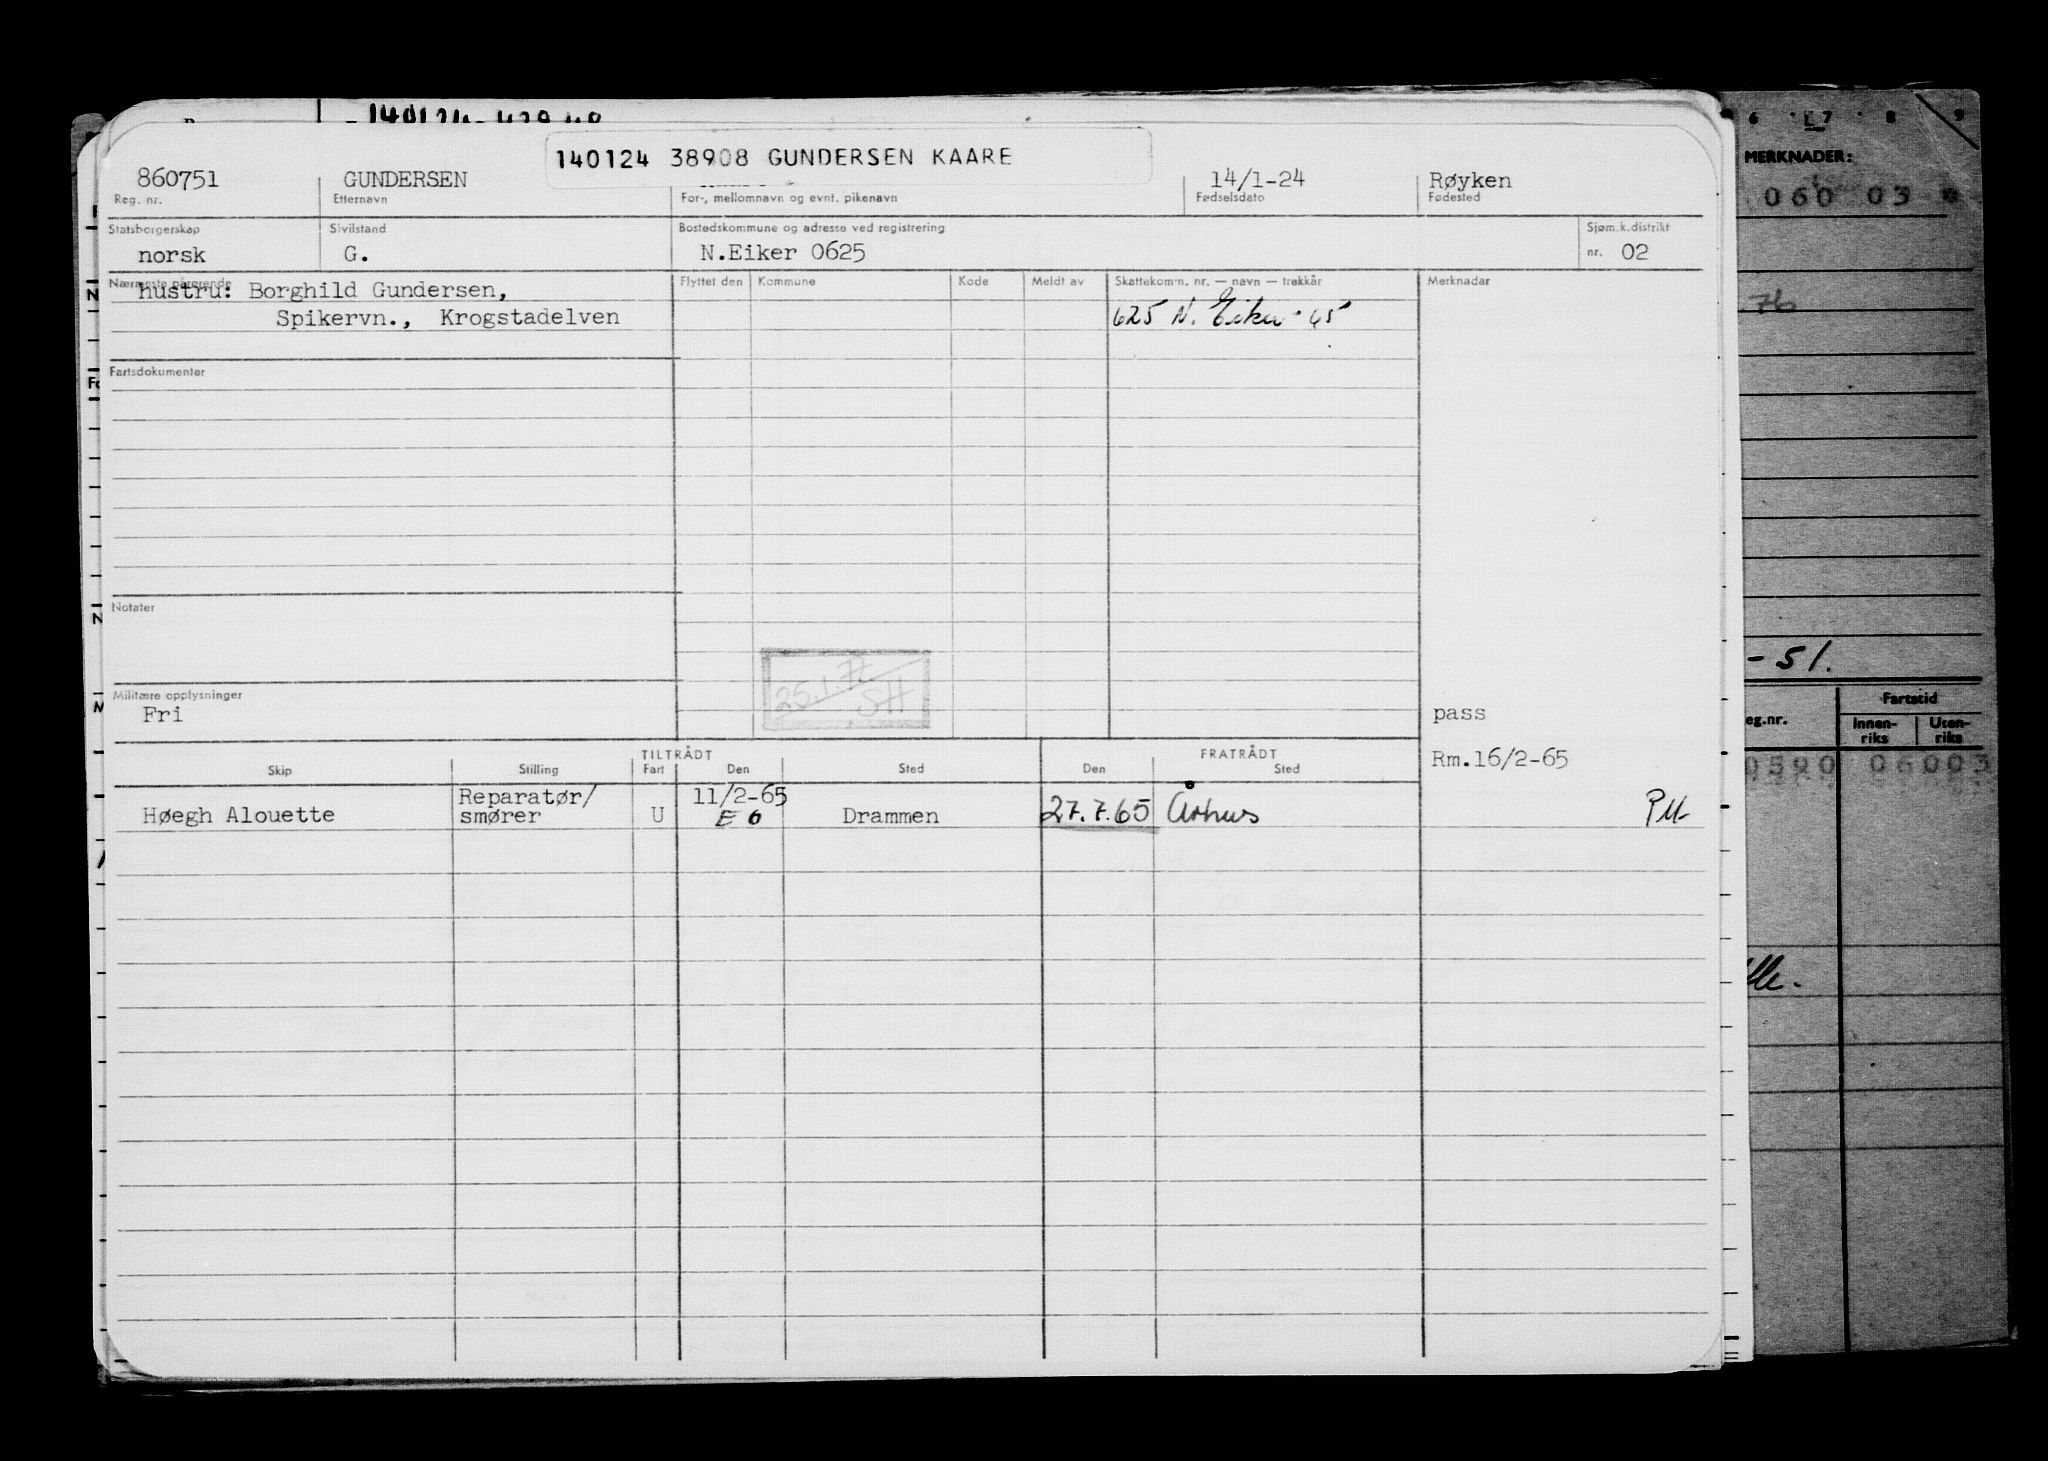 140124 38908 GUNDERSEN KAARE
860751 GUNDERSEN 14/1-24 Røyken
Reg. nr. Etternavn For-, mellomnavn og evnt. pikenavn Fødselsdato Fødested
Statsborgerskap Sivilstand Bostedskommune og adresse ved registrering Sjøm.k.distrikt
norsk G. N.Eiker 0625 nr. 02
Nærmeste pårørende Flyttet den Kommune Kode Meldt av Skattekomm. nr. — navn — trekkår Merknader
hustru: Borghild Gundersen,
Spikervn., Krogstadelven 625 N. Eiker - 65
Fartsdokumenter
Notater
25.1.71
SH
Militære opplysninger
Fri pass
TILTRÅDT FRATRÅDT
Rm.16/2-65
Skip Stilling Fart Den Sted Den Sted
Reparatør/ 11/2-65
Høegh Alouette smører U E 6 Drammen 27.7.65 Århus
6 7 8 9
MERKNADER:
060 03
76
- 51.
eg.nr. Fartstid
Innen-riks Uten-riks
0590 06003